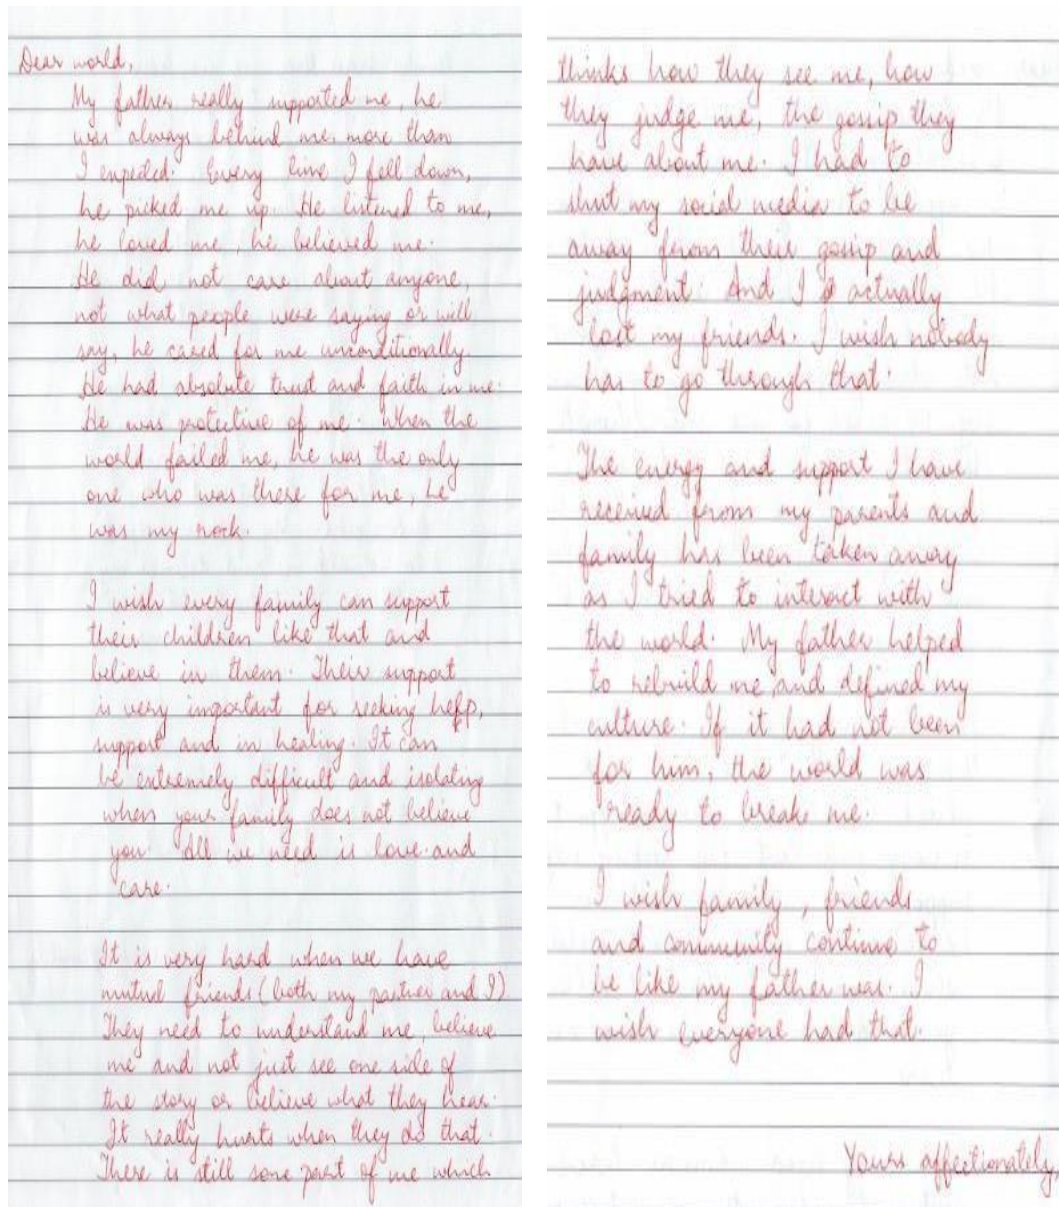 Dear world,
My father really supported me, he
was always behind me, more than
I expected. Every time I fell down,
he picked me up. He listened to me,
he loved me, he believed me.
He did not care about anyone,
not what people were saying or will
say, he cared for me unconditionally.
He had absolute trust and faith in me.
He was protective of me. When the
world failed me, he was the only
one who was there for me, he
was my rock.
I wish every family can support
their children like that and
believe in them. Their support
is very important for seeking help,
support and in healing. It can
be extremely difficult and isolating
when your family does not believe
you. All we need is love and
care.
It is very hard when we have
mutul friends (both my partner and I)
They need to understand me, believe
me and not just see one side of
the story or believe what they hear.
It really hurts when they do that.
There is still some part of me which
thinks how they see me, how
they judge me, the gossip they
have about me. I had to
shut my social media to be
away from their gossip and
judgment. And I actually
lost my friends. I wish nobody
has to go through that.
The energy and support I have
received from my parents and
family has been taken away
as I tried to interact with
the world. My father helped
to rebuild me and defined my
culture. If it had not been
for him, the world was
ready to break me.
I wish family, friends
and community continue to
be like my father was. I
wish everyone had that.
Yours affectionately,